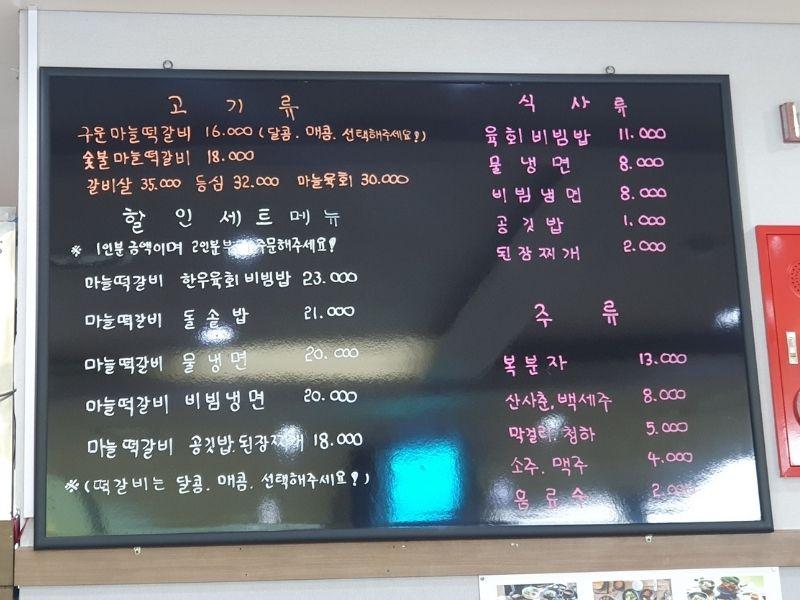 고 기 류
구운마늘떡갈비 16.000 (달콤. 매콤. 선택해주세요!)
숯불마늘떡갈비 18.000
갈비살 35.000 등심 32.000 마늘육회 30.000
할 인 세 트 메 뉴
※ 1인분 금액이며 2인분부터 주문해주세요!
마늘떡갈비 한우육회비빔밥 23.000
마늘떡갈비 돌솥밥 21.000
마늘떡갈비 물냉면 20.000
마늘떡갈비 비빔냉면 20.000
마늘떡갈비 공깃밥.된장찌개 18.000
※(떡갈비는 달콤. 매콤. 선택해주세요!)
식 사 류
육회비빔밥 11.000
물냉면 8.000
비빔냉면 8.000
공깃밥 1.000
된장찌개 2.000
주 류
복분자 13.000
산사춘.백세주 8.000
막걸리.청하 5.000
소주.맥주 4.000
음료수 2.000